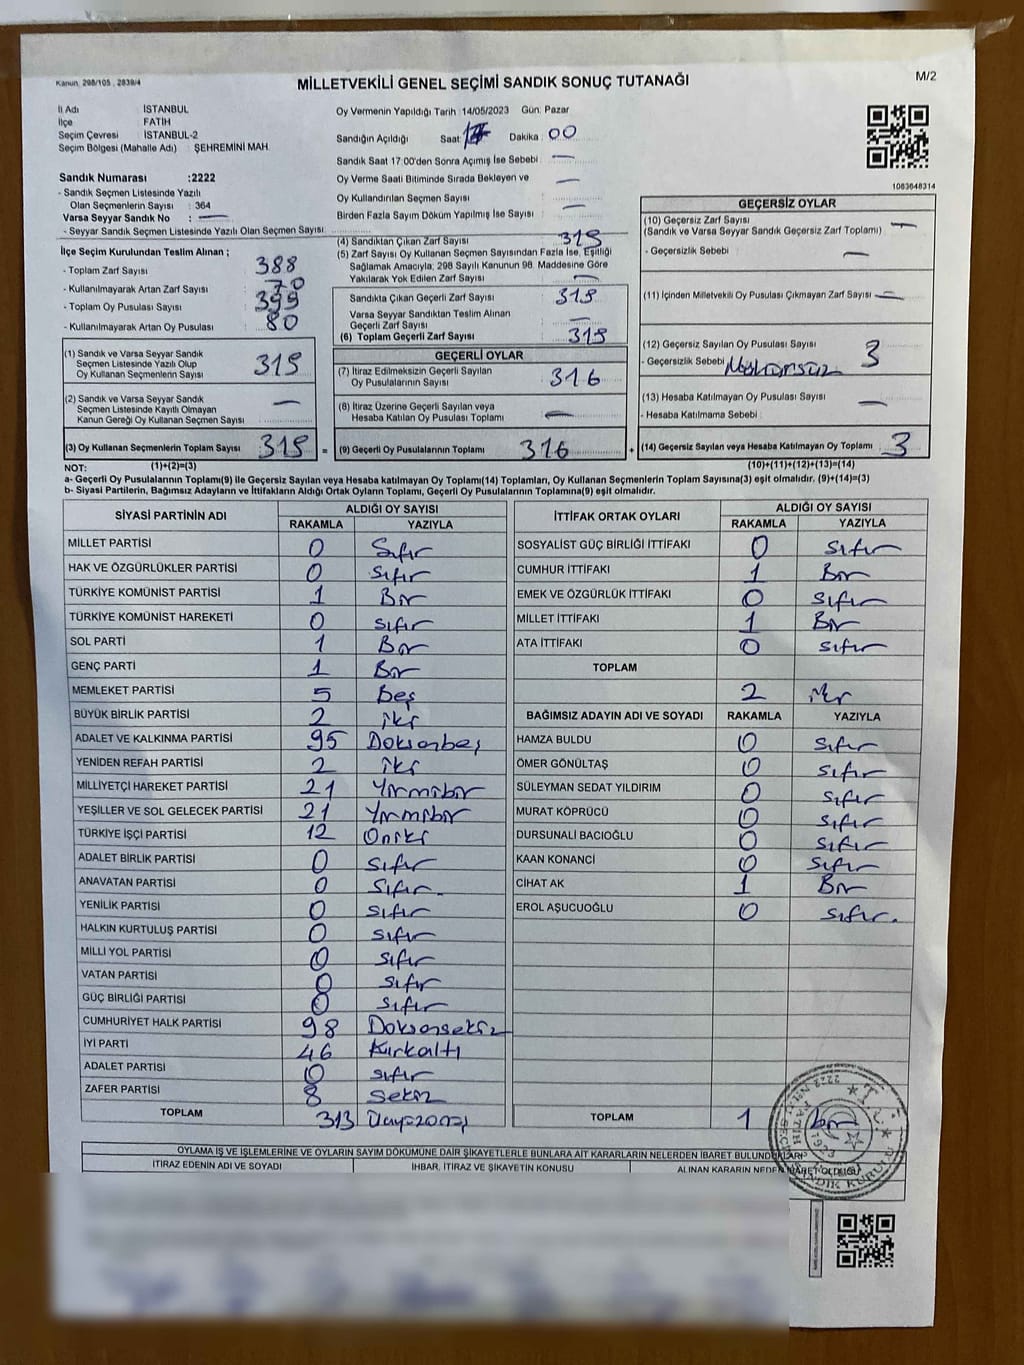 Kanun, 298/105 , 2839/4
MİLLETVEKİLİ GENEL SEÇİMİ SANDIK SONUÇ TUTANAĞI
M/2
İl Adı İSTANBUL
İlçe FATİH
Seçim Çevresi İSTANBUL-2
Seçim Bölgesi (Mahalle Adı) : ŞEHREMİNİ MAH.
Oy Vermenin Yapıldığı Tarih :14/05/2023 Gün: Pazar
Sandığın Açıldığı Saat: Dakika : 00
Sandık Saat 17:00'den Sonra Açımış İse Sebebi : —
Sandık Numarası :2222
- Sandık Seçmen Listesinde Yazılı
Olan Seçmenlerin Sayısı : 364
Varsa Seyyar Sandık No : —
- Seyyar Sandık Seçmen Listesinde Yazılı Olan Seçmen Sayısı:
Oy Verme Saati Bitiminde Sırada Bekleyen ve
Oy Kullandırılan Seçmen Sayısı —
Birden Fazla Sayım Döküm Yapılmış İse Sayısı : —
1083648314
İlçe Seçim Kurulundan Teslim Alınan ;
- Toplam Zarf Sayısı : 388
- Kullanılmayarak Artan Zarf Sayısı : 70
- Toplam Oy Pusulası Sayısı : 399
- Kullanılmayarak Artan Oy Pusulası : 80
(1) Sandık ve Varsa Seyyar Sandık
Seçmen Listesinde Yazılı Olup
Oy Kullanan Seçmenlerin Sayısı : 319
(2) Sandık ve Varsa Seyyar Sandık
Seçmen Listesinde Kayıtlı Olmayan
Kanun Gereği Oy Kullanan Seçmen Sayısı : —
(3) Oy Kullanan Seçmenlerin Toplam Sayısı : 319 =
(4) Sandıktan Çıkan Zarf Sayısı : 319
(5) Zarf Sayısı Oy Kullanan Seçmen Sayısından Fazla İse, Eşitliği
Sağlamak Amacıyla; 298 Sayılı Kanunun 98. Maddesine Göre
Yakılarak Yok Edilen Zarf Sayısı : —
Sandıkta Çıkan Geçerli Zarf Sayısı : 319
Varsa Seyyar Sandıktan Teslim Alınan
Geçerli Zarf Sayısı : —
(6) Toplam Geçerli Zarf Sayısı : 319
GEÇERLİ OYLAR
(7) İtiraz Edilmeksizin Geçerli Sayılan
Oy Pusulalarının Sayısı : 316
(8) İtiraz Üzerine Geçerli Sayılan veya
Hesaba Katılan Oy Pusulası Toplamı : —
(9) Geçerli Oy Pusulalarının Toplamı : 316 +
GEÇERSİZ OYLAR
(10) Geçersiz Zarf Sayısı : —
(Sandık ve Varsa Seyyar Sandık Geçersiz Zarf Toplamı)
- Geçersizlik Sebebi : —
(11) İçinden Milletvekili Oy Pusulası Çıkmayan Zarf Sayısı : —
(12) Geçersiz Sayılan Oy Pusulası Sayısı : 3
- Geçersizlik Sebebi : Mühürsüz
(13) Hesaba Katılmayan Oy Pusulası Sayısı : —
- Hesaba Katılmama Sebebi :
(14) Geçersiz Sayılan veya Hesaba Katılmayan Oy Toplamı : 3
NOT: (1)+(2)=(3) (10)+(11)+(12)+(13)=(14)
a- Geçerli Oy Pusulalarının Toplamı(9) ile Geçersiz Sayılan veya Hesaba katılmayan Oy Toplamı(14) Toplamları, Oy Kullanan Seçmenlerin Toplam Sayısına(3) eşit olmalıdır. (9)+(14)=(3)
b- Siyasi Partilerin, Bağımsız Adayların ve İttifakların Aldığı Ortak Oyların Toplamı, Geçerli Oy Pusulalarının Toplamına(9) eşit olmalıdır.
SİYASİ PARTİNİN ADI ALDIĞI OY SAYISI
RAKAMLA YAZIYLA
MİLLET PARTİSİ 0 Sıfır
HAK VE ÖZGÜRLÜKLER PARTİSİ 0 sıfır
TÜRKİYE KOMÜNİST PARTİSİ 1 Bir
TÜRKİYE KOMÜNİST HAREKETİ 0 sıfır
SOL PARTİ 1 Bir
GENÇ PARTİ 1 Bir
MEMLEKET PARTİSİ 5 Beş
BÜYÜK BİRLİK PARTİSİ 2 iki
ADALET VE KALKINMA PARTİSİ 95 Doksanbeş
YENİDEN REFAH PARTİSİ 2 iki
MİLLİYETÇİ HAREKET PARTİSİ 21 Yirmibir
YEŞİLLER VE SOL GELECEK PARTİSİ 21 Yirmibir
TÜRKİYE İŞÇİ PARTİSİ 12 Oniki
ADALET BİRLİK PARTİSİ 0 sıfır
ANAVATAN PARTİSİ 0 sıfır.
YENİLİK PARTİSİ 0 sıfır
HALKIN KURTULUŞ PARTİSİ 0 sıfır
MİLLİ YOL PARTİSİ 0 sıfır
VATAN PARTİSİ 0 sıfır
GÜÇ BİRLİĞİ PARTİSİ 0 sıfır
CUMHURİYET HALK PARTİSİ 98 Doksansekiz
İYİ PARTİ 46 Kırkaltı
ADALET PARTİSİ 0 sıfır
ZAFER PARTİSİ 8 Sekiz
TOPLAM 313
İTTİFAK ORTAK OYLARI ALDIĞI OY SAYISI
RAKAMLA YAZIYLA
SOSYALİST GÜÇ BİRLİĞİ İTTİFAKI 0 sıfır
CUMHUR İTTİFAKI 1 Bir
EMEK VE ÖZGÜRLÜK İTTİFAKI 0 sıfır
MİLLET İTTİFAKI 1 Bir
ATA İTTİFAKI 0 sıfır
TOPLAM
2 iki
BAĞIMSIZ ADAYIN ADI VE SOYADI RAKAMLA YAZIYLA
HAMZA BULDU 0 sıfır
ÖMER GÖNÜLTAŞ 0 sıfır
SÜLEYMAN SEDAT YILDIRIM 0 sıfır
MURAT KÖPRÜCÜ 0 sıfır
DURSUNALİ BACIOĞLU 0 sıfır
KAAN KONANCİ 0 sıfır
CİHAT AK 1 Bir
EROL AŞUCUOĞLU 0 sıfır.
TOPLAM 1 bir
OYLAMA İŞ VE İŞLEMLERİNE VE OYLARIN SAYIM DÖKÜMÜNE DAİR ŞİKAYETLERLE BUNLARA AİT KARARLARIN NELERDEN İBARET BULUNDUKLARI
İTİRAZ EDENİN ADI VE SOYADI İHBAR, İTİRAZ VE ŞİKAYETİN KONUSU ALINAN KARARIN NEDEN İBARET OLDUĞU
T.C. 2222 FATİH SANDIK KURULU